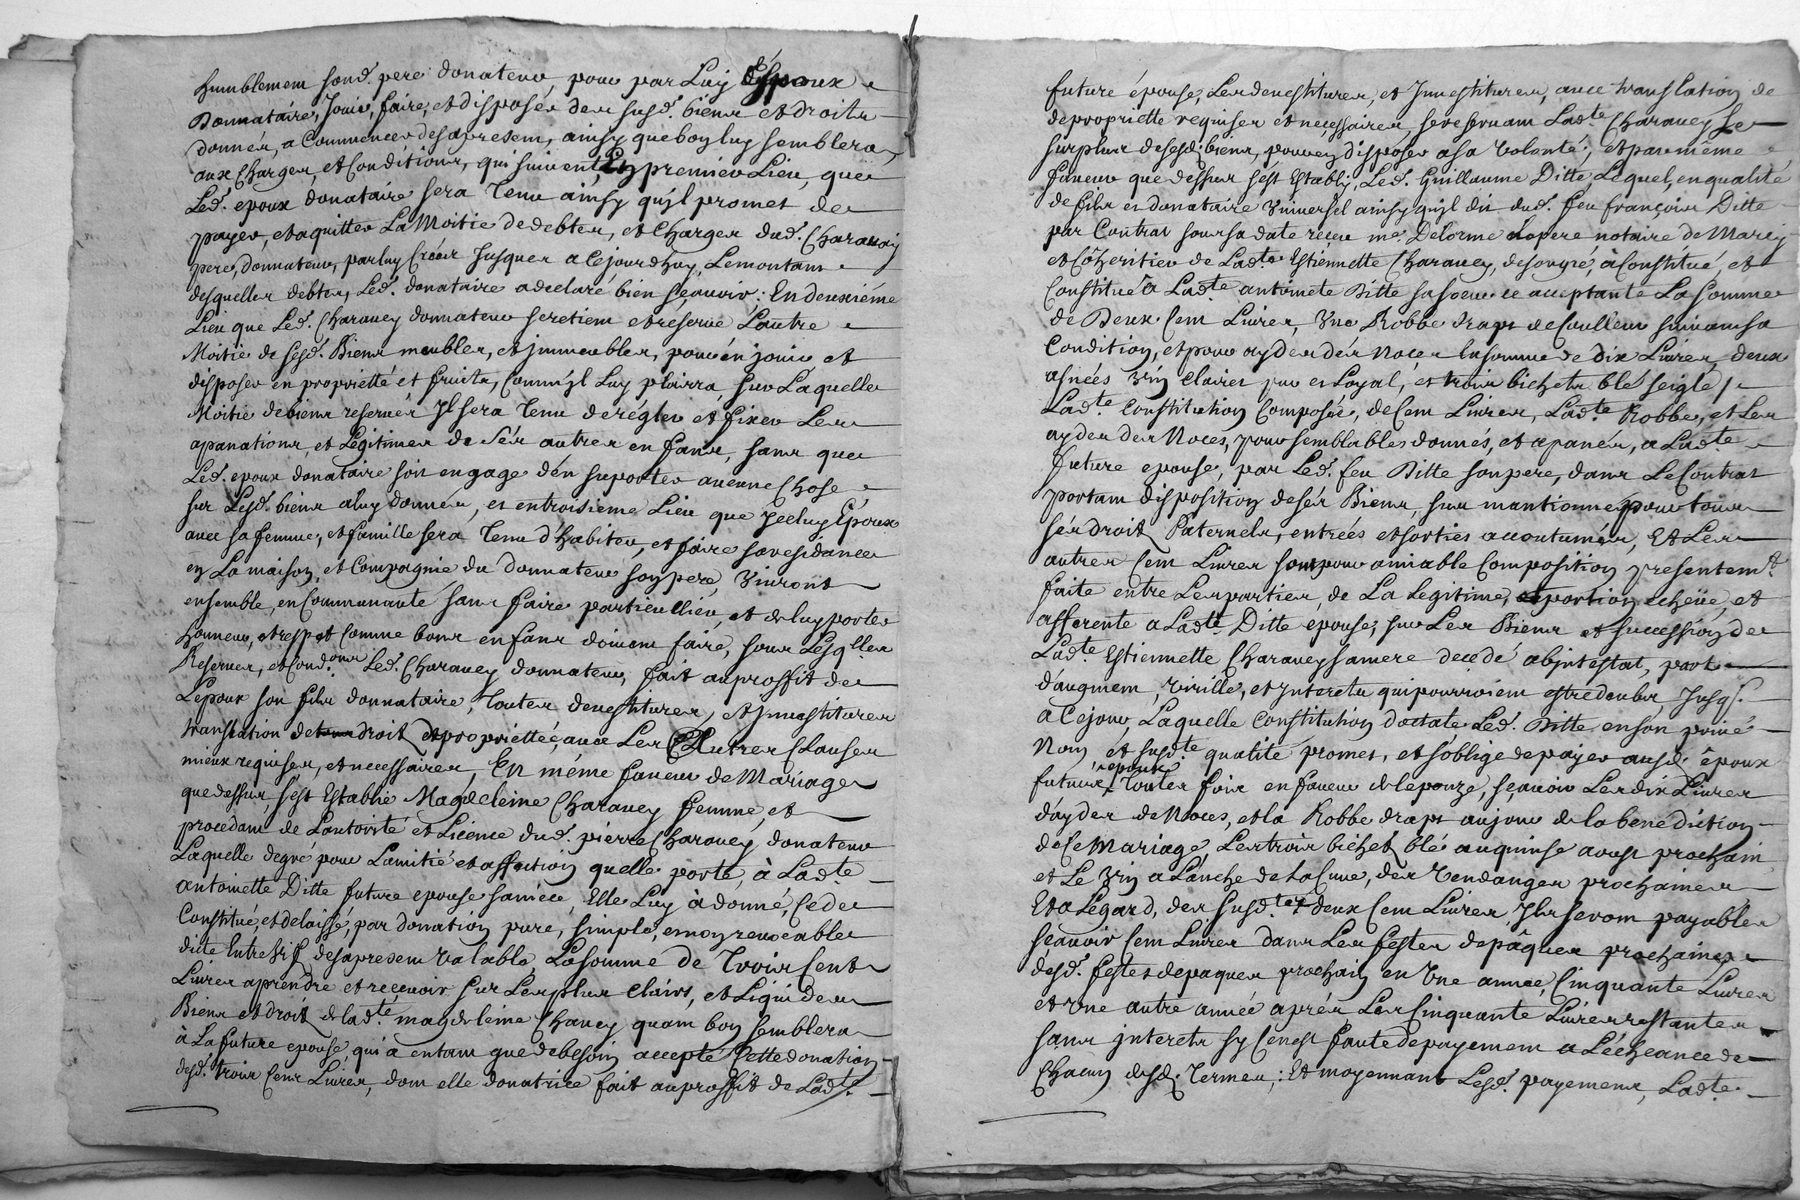 humblement sond. pere donateur, pour par Luy Espoux
Donnataire, Jouir, faire, et disposer des susd. biens et droits
donnés, a Commencer desapresent, ainsy que boy luy semblera,
aux Charges, et Conditions, qui suivent, En premier Lieu, que
Led. epoux donataire sera Tenu ainsy qu'jl promet de
payer, et aquitter La Moitié de debtes, et Charges dud. Charavay
pere, donnateur, par luy Créés Jusques a Cejourdhuy, Lemontant
desquelles debtes, Led. donataire a declaré bien sçauoir; En deuxiéme
Lieu que Led. Charauey donnateur seretient et reserve L'autre
Moitié de sesd. Biens meubles, et jmmeubles, pour en jouir et
disposer en proprietté et fruits, Comm'jl Luy plairra, sur Laquelle
Moitié de biens reservés Jl sera Tenu de régler et fixer Les
apanations, et Légitimes de sés autres enfans, sans que
Led. epoux donataire soit engagé d'en suporter aucune Chose
sur Lesd. biens aluy donnés, et entroisiéme Lieu que Jceluy Epoux
auec sa femme, et famille sera Tenu d'habiter, et faire saresidance
en La maison, et Compagnie du donnateur son pere, Viuront
ensemble, en Communauté sans faire particullier, et deluy porter
honneur, et respet Comme bons enfans doiuent faire, sous Lesqlles
Reserues, et Cond.ons Led. Charauey donnateur, fait auproffit de
L'epoux son fils donnataire, Toutes deuestitures, et jnuestitures
translation de droit et proprietteé, auec Les Autres Clauses
mieux requises, et necessaires, En méme faueur de Mariage
que dessus, s'est Establie Magdeleine Charauey femme, et
procedant de L'autorité et Licence dud. pierre Charauey donateur
Laquelle degré pour L'amitié et affection quelle porte, à Lad.te
antoinette Ditte future epouse saniéce, Elle Luy à donné, Cede
Constitué, et delaissé, par donation pure, simple, et noy reuocable
dicte Entre Vif desapresent Valable, La somme de Trois Cents
Liures aprendre et reçeuoir sur Les plus Clairs, et Liquides
Biens et droit de lad.te magdeleine Chauey quant boy semblera
à La future epouse, qui a entant que debesoin accepte Cette donation
desd. trois Cens Liures, dont elle donatrice fait auproffit de Lad.te
future épouse, Les deuestitures, et Jnuestitures, auec translation de
de propriette requises et neçessaires, sereseruant Lad.te Charauey Le
surplus desesd. biens, pour en disposer asa Volonté; et par même
faueur que dessus s'est Establÿ, Led. Guillaume Ditte, Lequel, en qualité
de fils et donataire Vniversel ainsy qu'jl dit dud. feu françois Ditte
par Contrat sour sa date reçeu me. Delorme Lepere notaire de Marcy
et Cô'heritier de Lad.te Estiennette Charauey, desongre, à Constitué, et
Constitue à Lad.te antoinete Ditte sa soeur ce acceptante La somme
de Deux Cent Liures, Vne Robbe drapt de Coulleur suiuant sa
Condition, et pour ayder dés Noces la somme de dix Liures, deux
asnées Vin Clairet pur et Loyal, et trois bichets blé seigle;
Lad.te Constitution Composée, de Cent Liures, Lad.te Robbe, et Les
ayder des Noces, pour semblables donnés, et apanés, a Lad.te
future epouse, par Led. feu Ditte son pere, dans Le Contrat
portant disposition de sés Biens, sus mantionné pour tous
sés droit Paternels, entrées et sorties accoutumés, Et Les
autres Cent Liures sont pour amiable Composition presentemt.
faite entre Les parties, de La Legitime, et portion echeüe, et
afferente a Lad.te Ditte epouse, sur Les Biens et succession de
Lad.te Estiennette Charauey samere decedé abjntestat, part
d'augment, Virille, et Jnterets qui pourroient estre deubs, Jusqs.
à Cejour, Laquelle Constitution d'octate Led. Ditte, en son priué
Nom, et susd.te qualité promet, et s'oblige de payer ausd. époux
futurs epoux Toutes fois en faueur delepouze, sçauoir Les dix Liures
d'ayder de Noces, et la Robbe drapt au jour de la benediction
de Ce Mariage, Les trois bichet blé auquinse aoust prochain
et Le Vin a L'anche de La Cuue, des Vendanges prochaines
Et a L'égard, des susd.tes deux Cent Liures, Jls seront payables
sçauoir Cent Liures dans Les festes de pâques prochaines
desd. festes depaques prochain en Vne année, Cinquante Liures
et Vne autre année aprés Les Cinquante Liures restantes
sans jnterets sy Cenest faute depayement a L'écheance de
Chacun desd. Termes; Et moyennant Lesd. payements, Lad.te